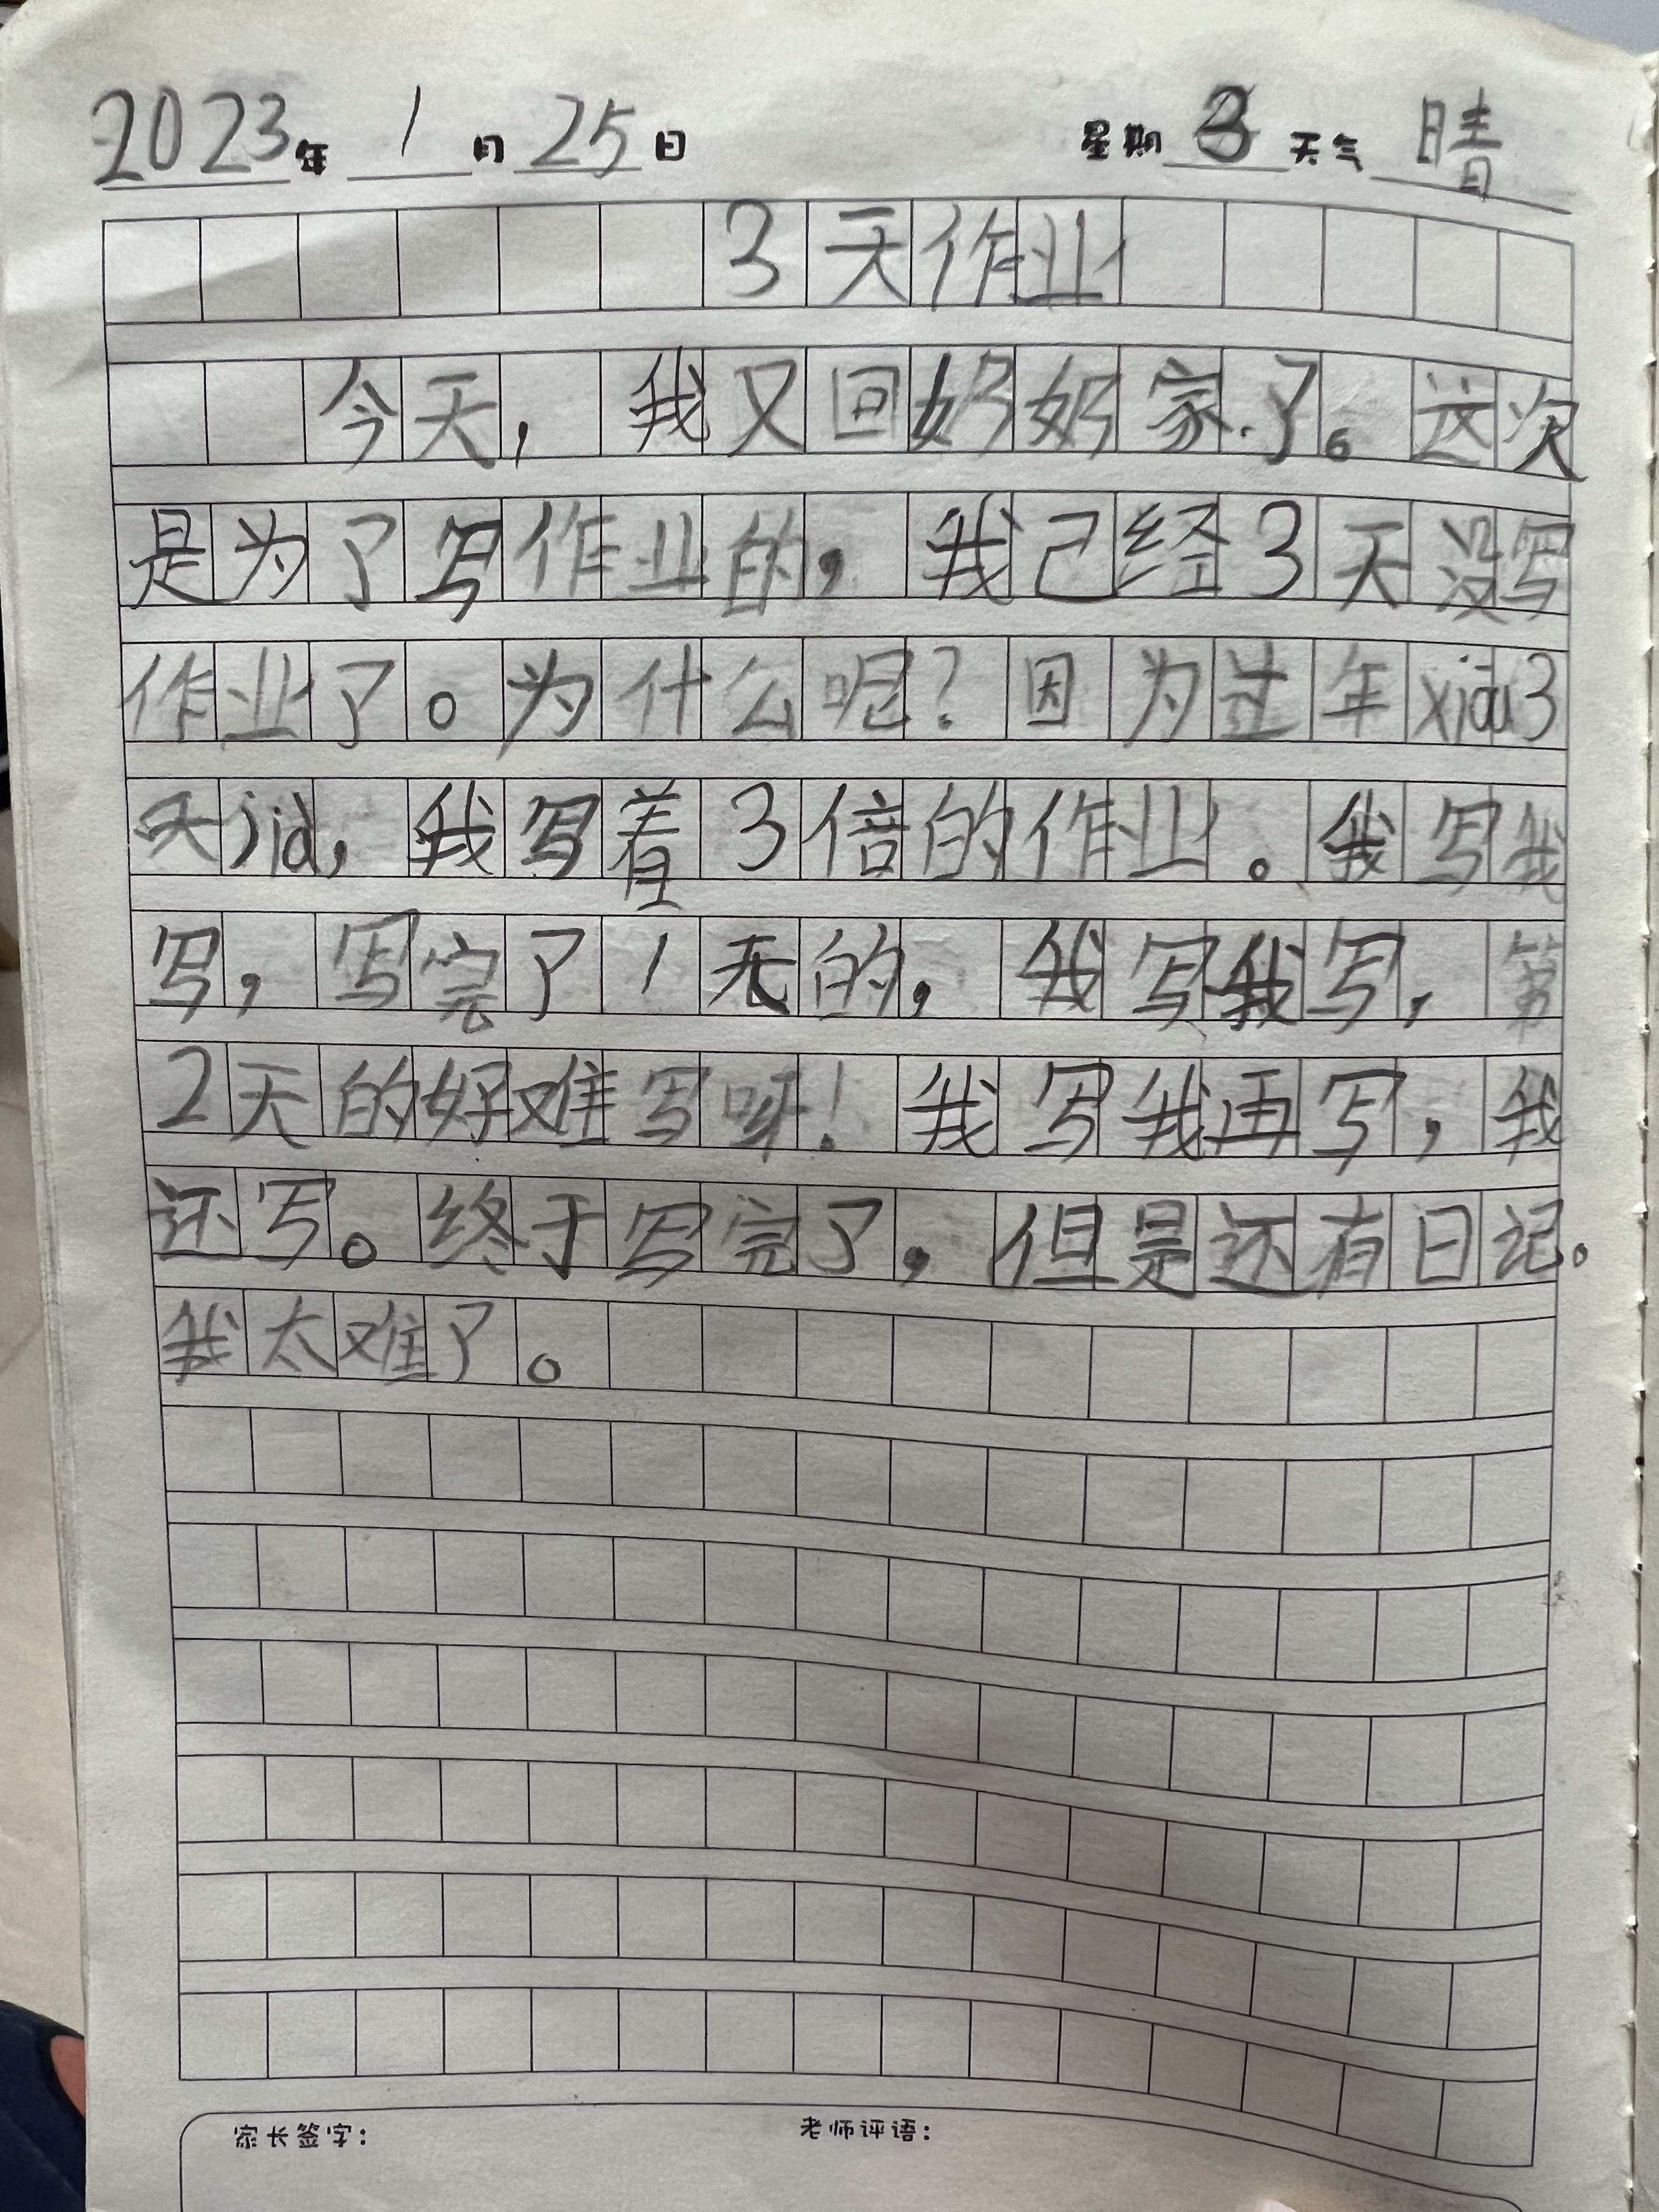 2023年 1月 25日 星期 3 天气 晴
3天作业
今天，我又回奶奶家了。这次
是为了写作业的，我己经3天没写
作业了。为什么呢？因为过年xiou3
天jid，我写着3倍的作业。我写我
写，写完了1天的，我写我写，第
2天的好难写呀！我写我再写，我
还写。终于写完了，但是还有日记。
我太难了。
家长签字：
老师评语：